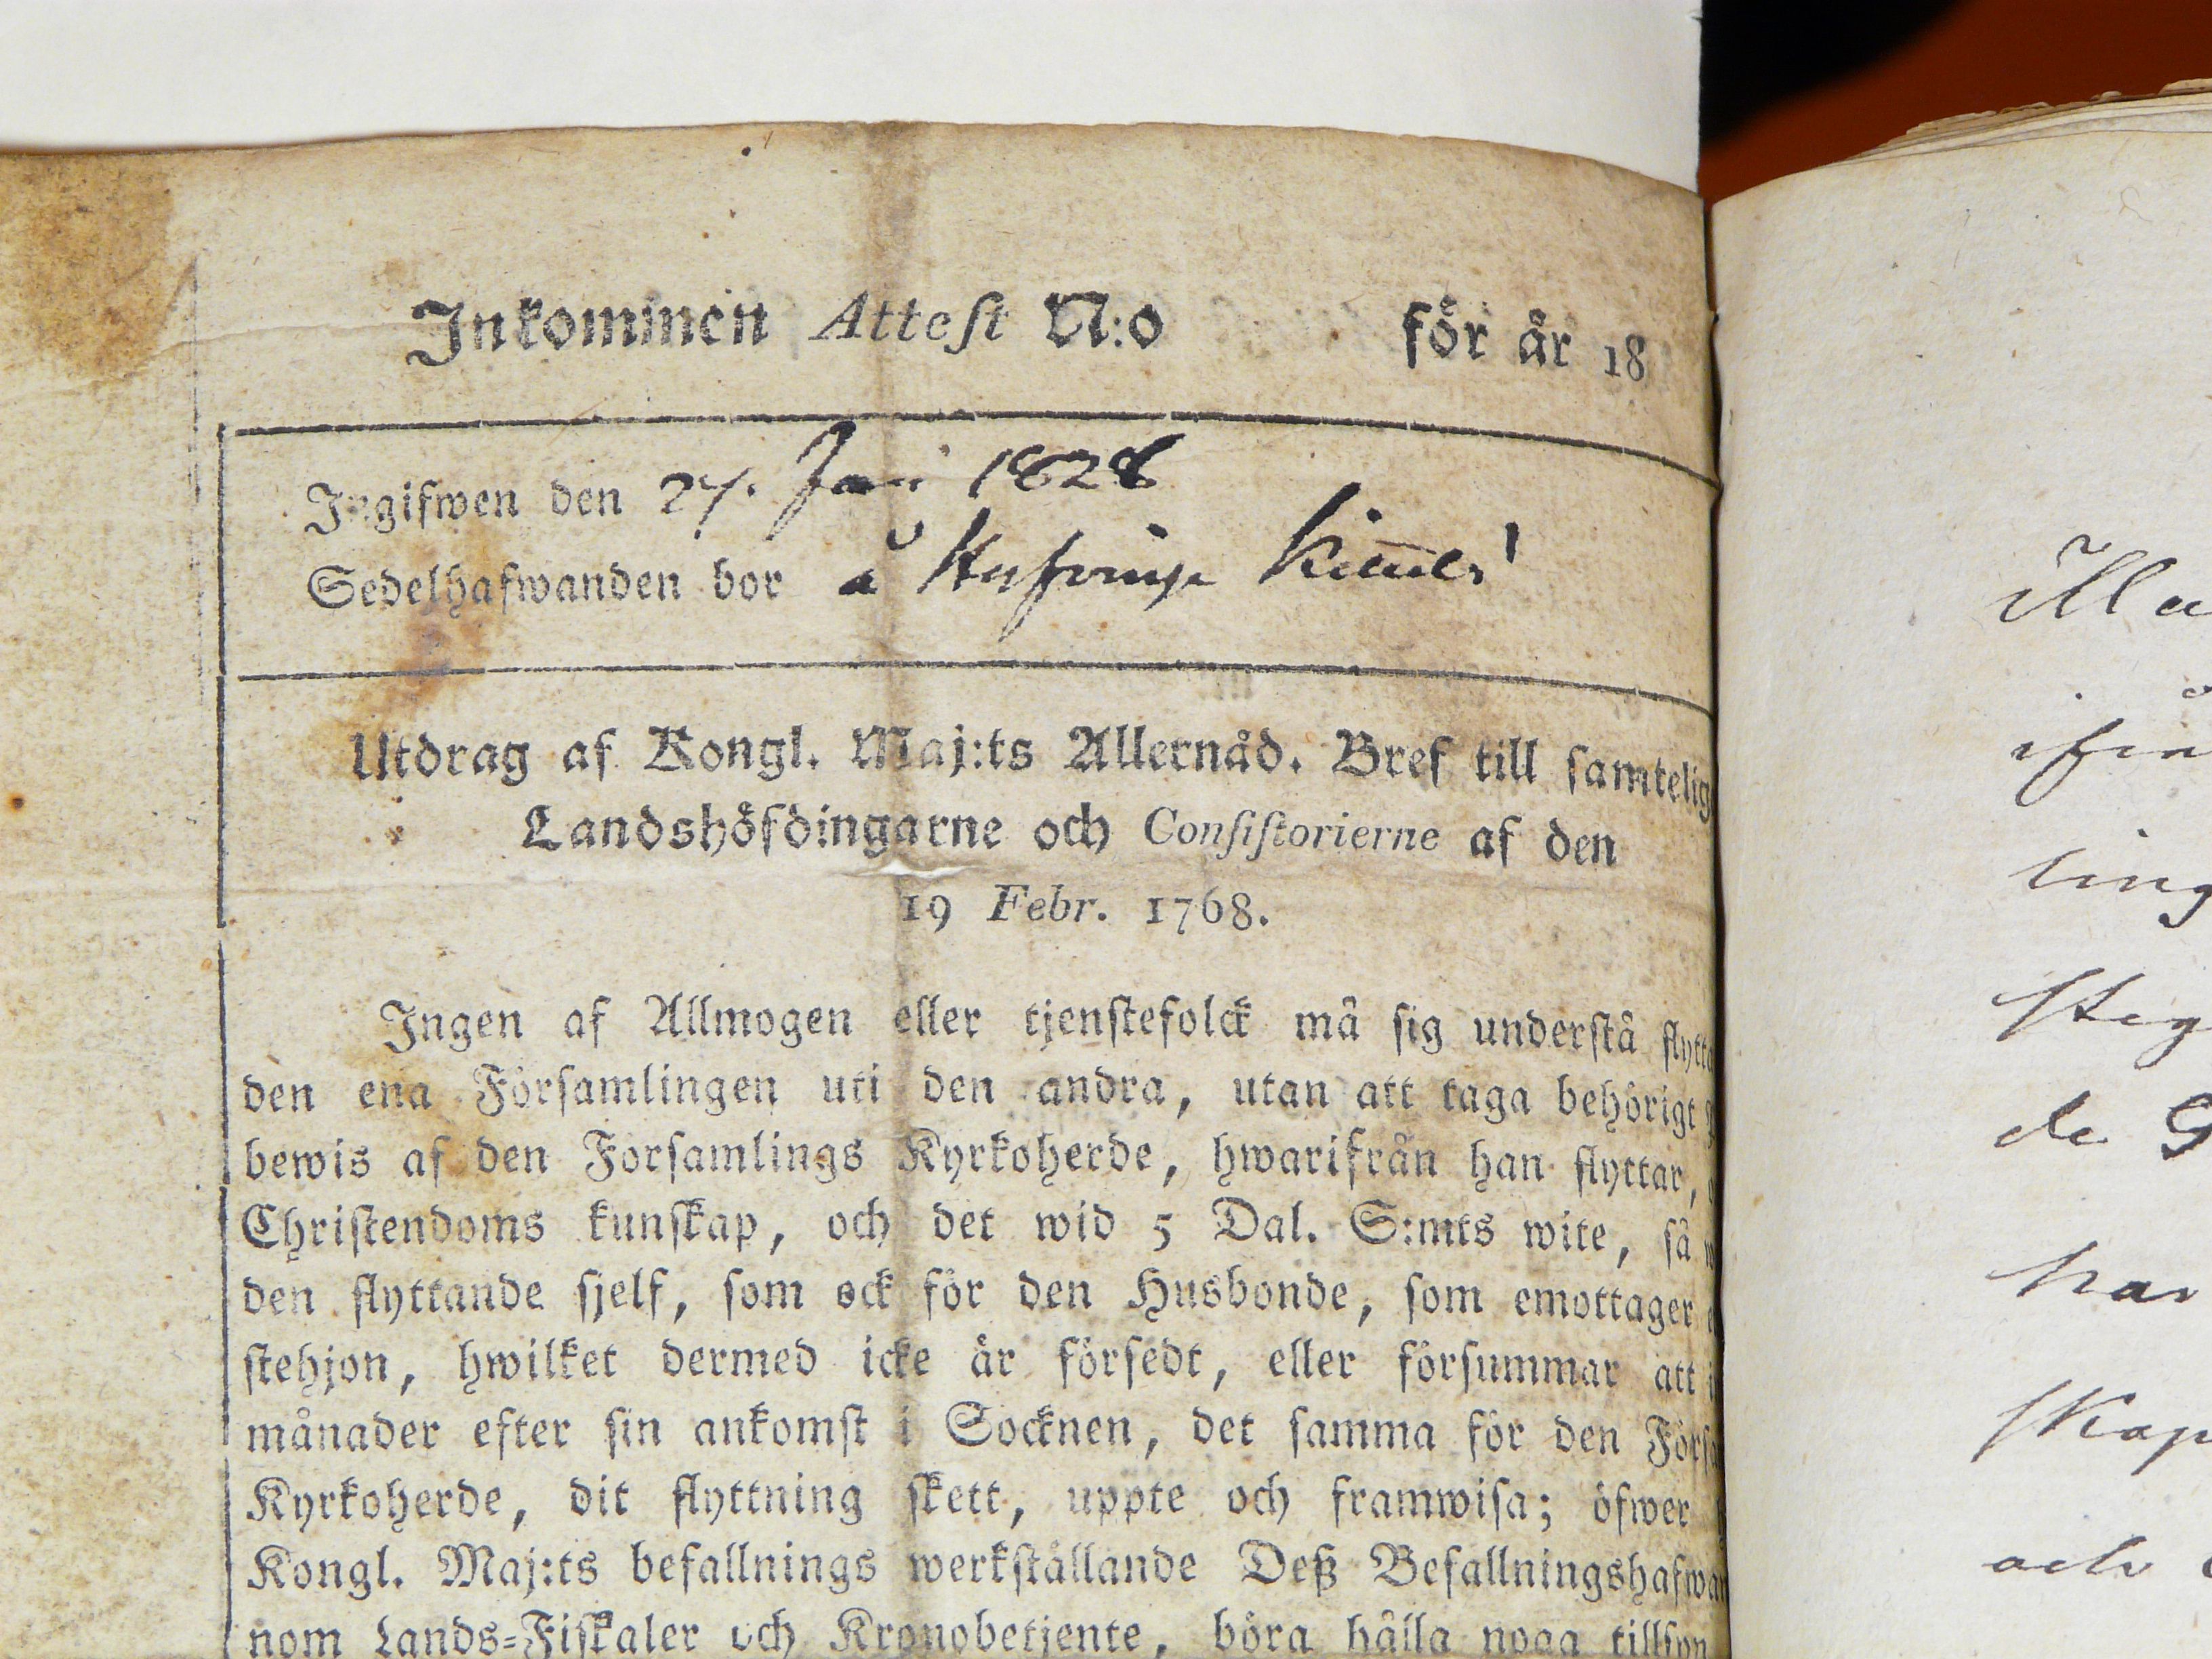 Inkommen Attest N:o för år 18
Ingifwen den 27. Jan 1828
Sedelhafwanden bor å
Utdrag af Kongl. Maj:ts Allernåd. Bref till samtelig
Landshöfdingarne och Consistorierne af den
19 Febr. 1768.
Ingen af Allmogen eller tjenstefolck må sig understå flytta
den ena Församlingen uti den andra, utan att taga behörigt
bewis af den Församlings Kyrkoherde, hwarifrån han flyttar,
Christendoms kunskap, och det wid 5 Dal. S:mts wite, så
den flyttande sjelf, som ock för den Husbonde, som emottager
stehjon, hwilket dermed icke är försedt, eller försummar att
månader efter sin ankomst i Socknen, det samma för den Förs
Kyrkoherde, dit flyttning skett, uppte och framwisa; öfwer
Kongl. Maj:ts befallnings werkställande Deß Befallningshafwan
nom Lands-Fiskaler och Kronobetjente, böra hålla noga tillsyn
ling
de
har
skap
och